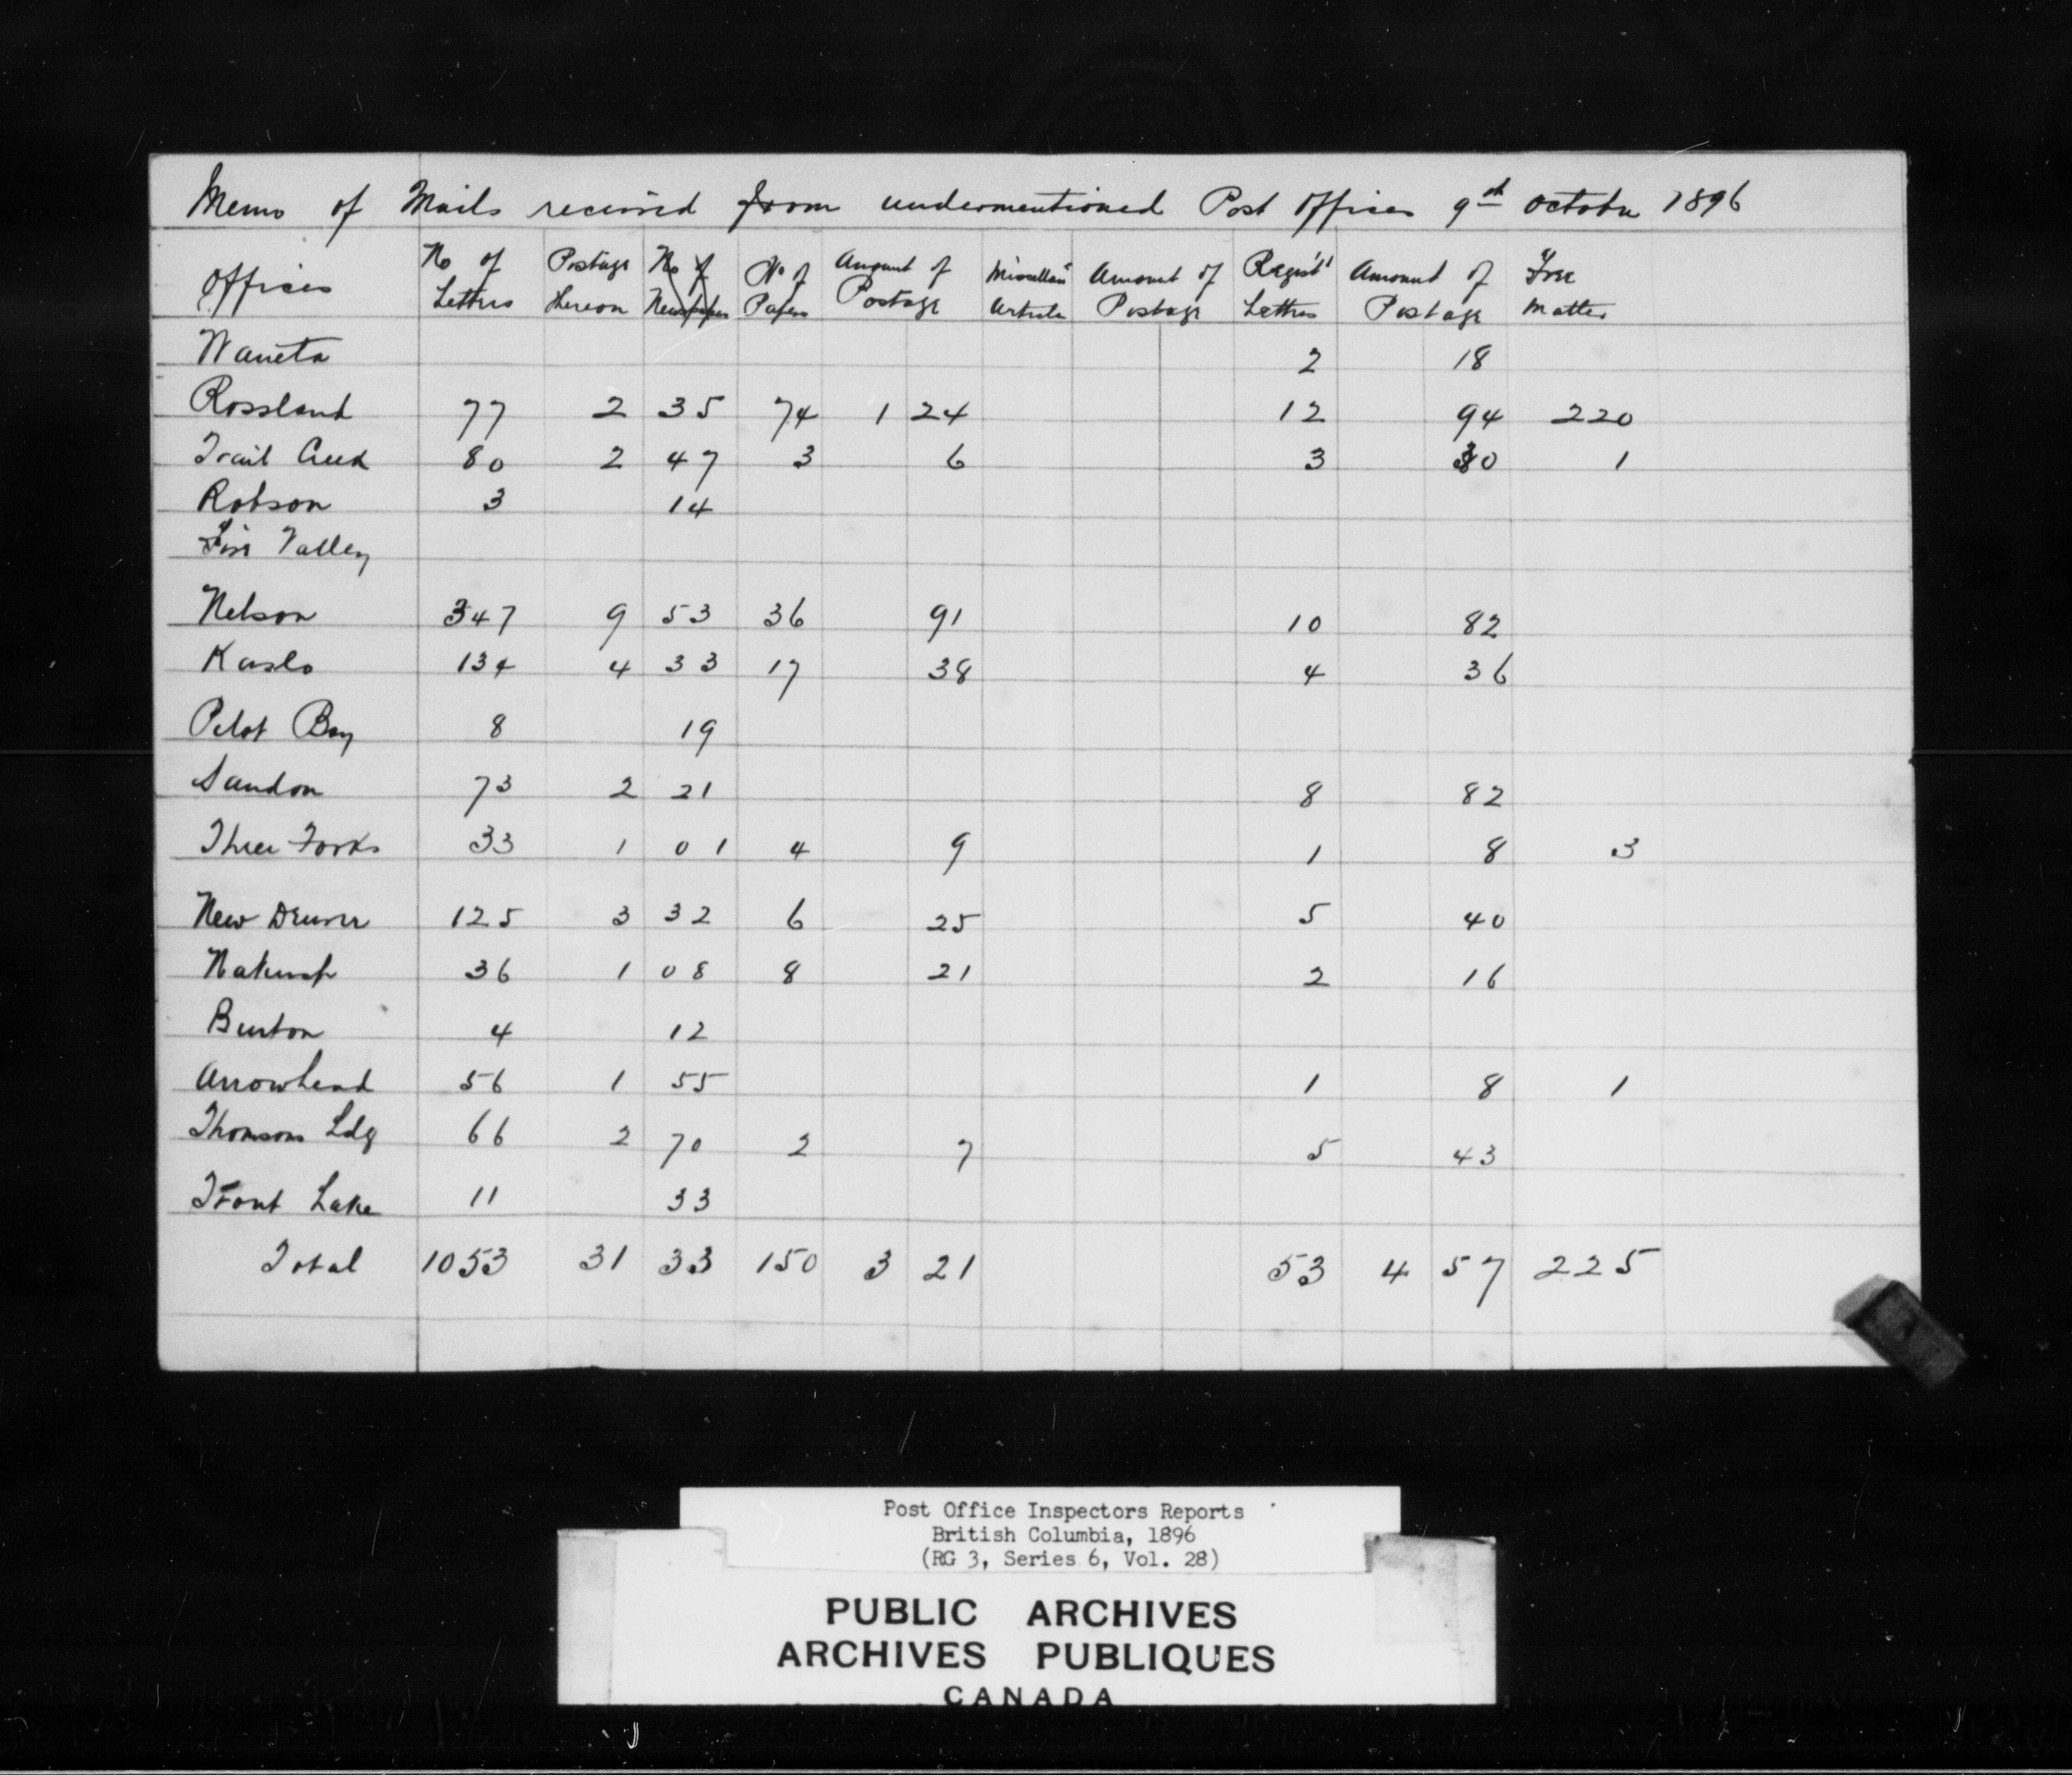 Memo of Mails received from undermentioned Post Offices 9th October 1896
Offices No of Letters Postage thereon No of Newspapers No of Papers Amount of Postage Miscellans Article Amount of Postage Regist'd Letters Amount of Postage Free Matter
Waneta 2 18
Rossland 77 2 35 74 1 24 12 94 220
Trail Creek 80 2 47 3 6 3 30 1
Robson 3 14
Fire Valley
Nelson 347 9 53 36 91 10 82
Kaslo 134 4 33 17 38 4 36
Pilot Bay 8 19
Sandon 73 2 21 8 82
Three Forks 33 1 01 4 9 1 8 3
New Denver 125 3 32 6 25 5 40
Nakusp 36 1 08 8 21 2 16
Burton 4 12
Arrowhead 56 1 55 1 8 1
Thomsons Ldg 66 2 70 2 7 5 43
Trout Lake 11 33
Total 1053 31 33 150 3 21 53 4 57 225
Post Office Inspectors Reports
British Columbia, 1896
(RG 3, Series 6, Vol. 28)
PUBLIC ARCHIVES
ARCHIVES PUBLIQUES
CANADA